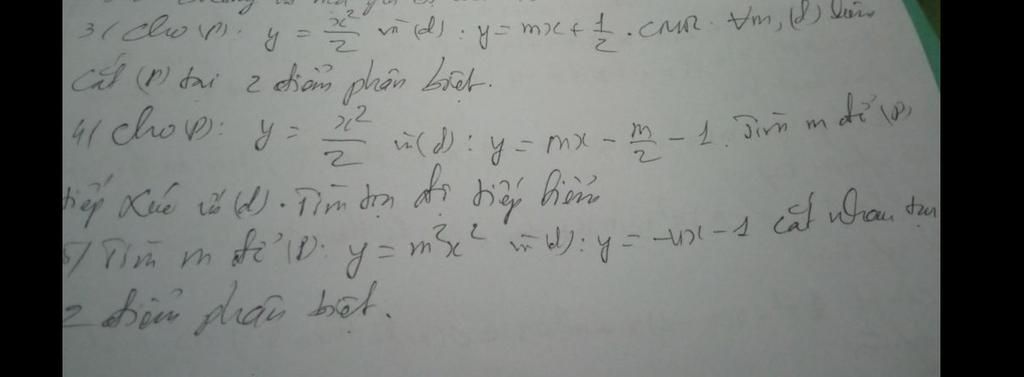 3/ Cho (P): y = x²/2 và (d): y = mx + 1/2. CMR ∀m, (d) luôn
cắt (P) tại 2 điểm phân biệt.
4/ Cho (P): y = x²/2 và (d): y = mx - m/2 - 1. Tìm m để (P)
tiếp xúc với (d). Tìm tọa độ tiếp điểm
5/ Tìm m để (P): y = m²x² và (d): y = -4x - 1 cắt nhau tại
2 điểm phân biệt.